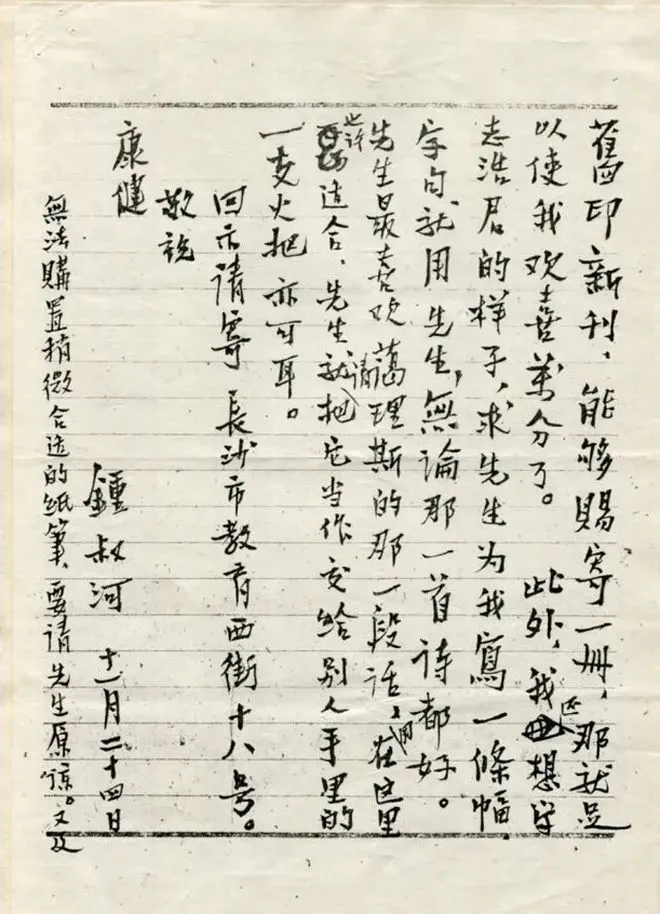 舊印新刊、能够賜寄一冊,那就足
以使我欢喜萬分了。 此外,我还想学
志浩君的样子,求先生为我寫一條幅,
字句就用先生,無論那一首诗都好。
先生最喜欢蔼理斯的那一段话,用在这里
也许适合,先生就请把它当作交给别人手里的
一支火把亦可耳。
回示请寄長沙市教育西街十八号。
敬祝
康健
鍾叔河 十一月二十四日
無法購置稍微合适的纸筆,要请先生原谅。又及